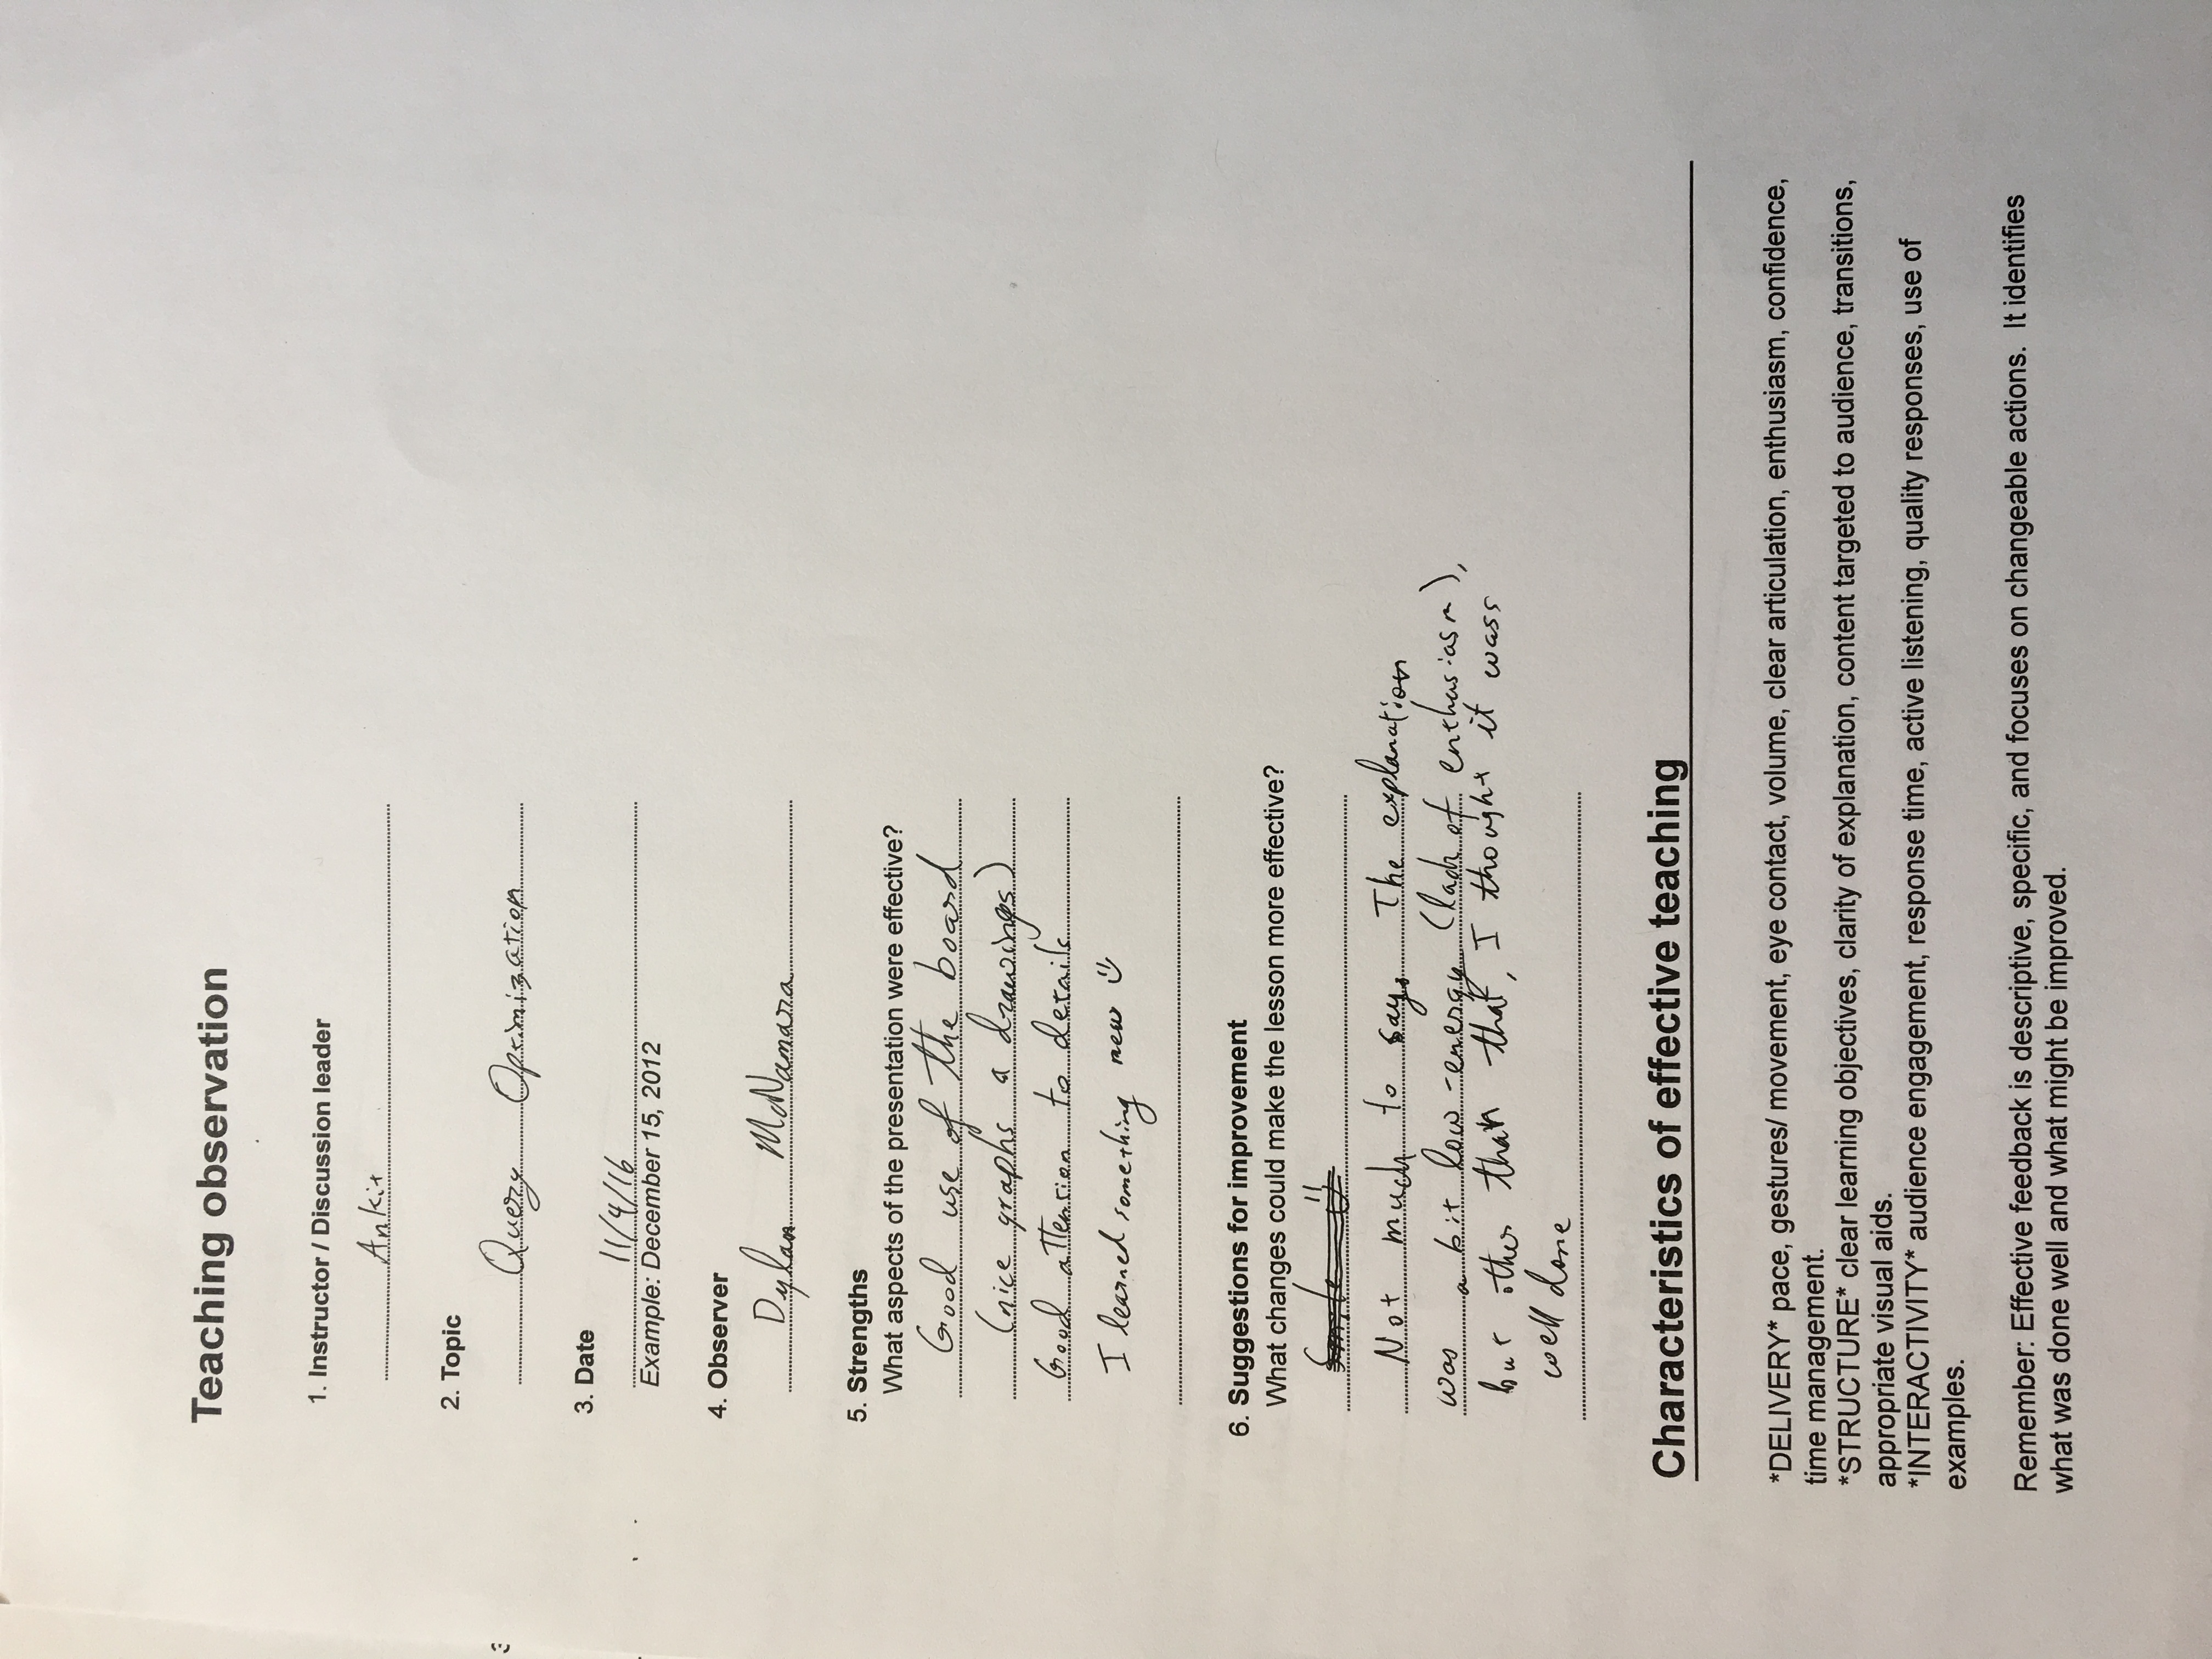 Teaching observation
1. Instructor / Discussion leader
Ankit
2. Topic
Query Optimization
3. Date
11/4/16
Example: December 15, 2012
4. Observer
Dylan McNamara
5. Strengths
What aspects of the presentation were effective?
Good use of the board
(nice graphs a drawings)
Good attention to details
I learned something new :)
6. Suggestions for improvement
What changes could make the lesson more effective?
Not much to say. The explanation
was a bit low-energy (lack of enthusiasm),
but other than that, I thought it was
well done
Characteristics of effective teaching
*DELIVERY* pace, gestures/ movement, eye contact, volume, clear articulation, enthusiasm, confidence,
time management.
*STRUCTURE* clear learning objectives, clarity of explanation, content targeted to audience, transitions,
appropriate visual aids.
*INTERACTIVITY* audience engagement, response time, active listening, quality responses, use of
examples.
Remember: Effective feedback is descriptive, specific, and focuses on changeable actions. It identifies
what was done well and what might be improved.